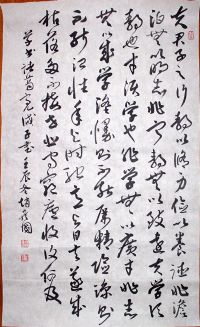 夫君子之行静以修身俭以养德非澹
泊无以明志非宁静无以致远夫学须
静也才须学也非学无以广才非志
无以成学慢则不能励精险躁则
不能冶性年与时驰意与日去遂成
枯落多不接世悲守穷庐将复何及
诸葛亮诫子书壬辰冬